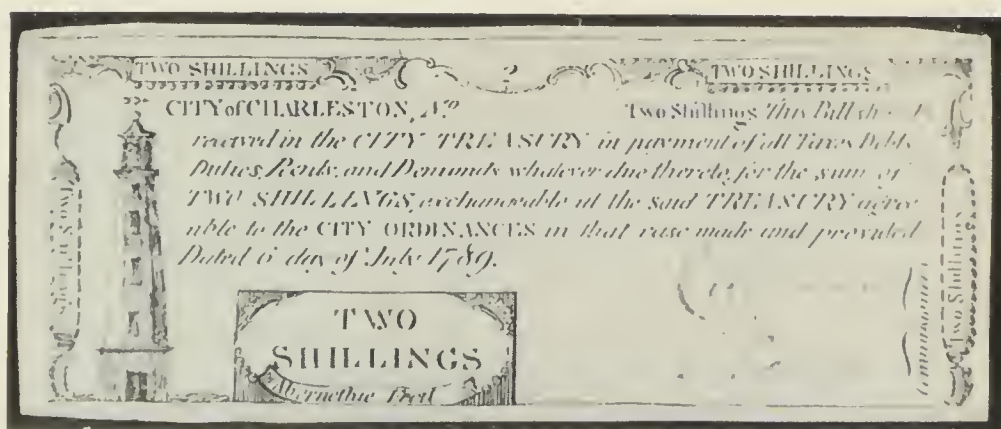 TWO SHILLINGS 2 TWO SHILLINGS
CITY of CHARLESTON, No. Two Shillings This Bill
received in the CITY TREASURY in payment of all Taxes Debts
Duties, Rents, and Demands whatever due thereto, for the sum of
TWO SHILLINGS, exchangeable at the said TREASURY agree
able to the CITY ORDINANCES in that case made and provided
Dated 6 day of July 1789.
TWO
SHILLINGS
Abernethie Fecit
Two Shillings
Two Shillings